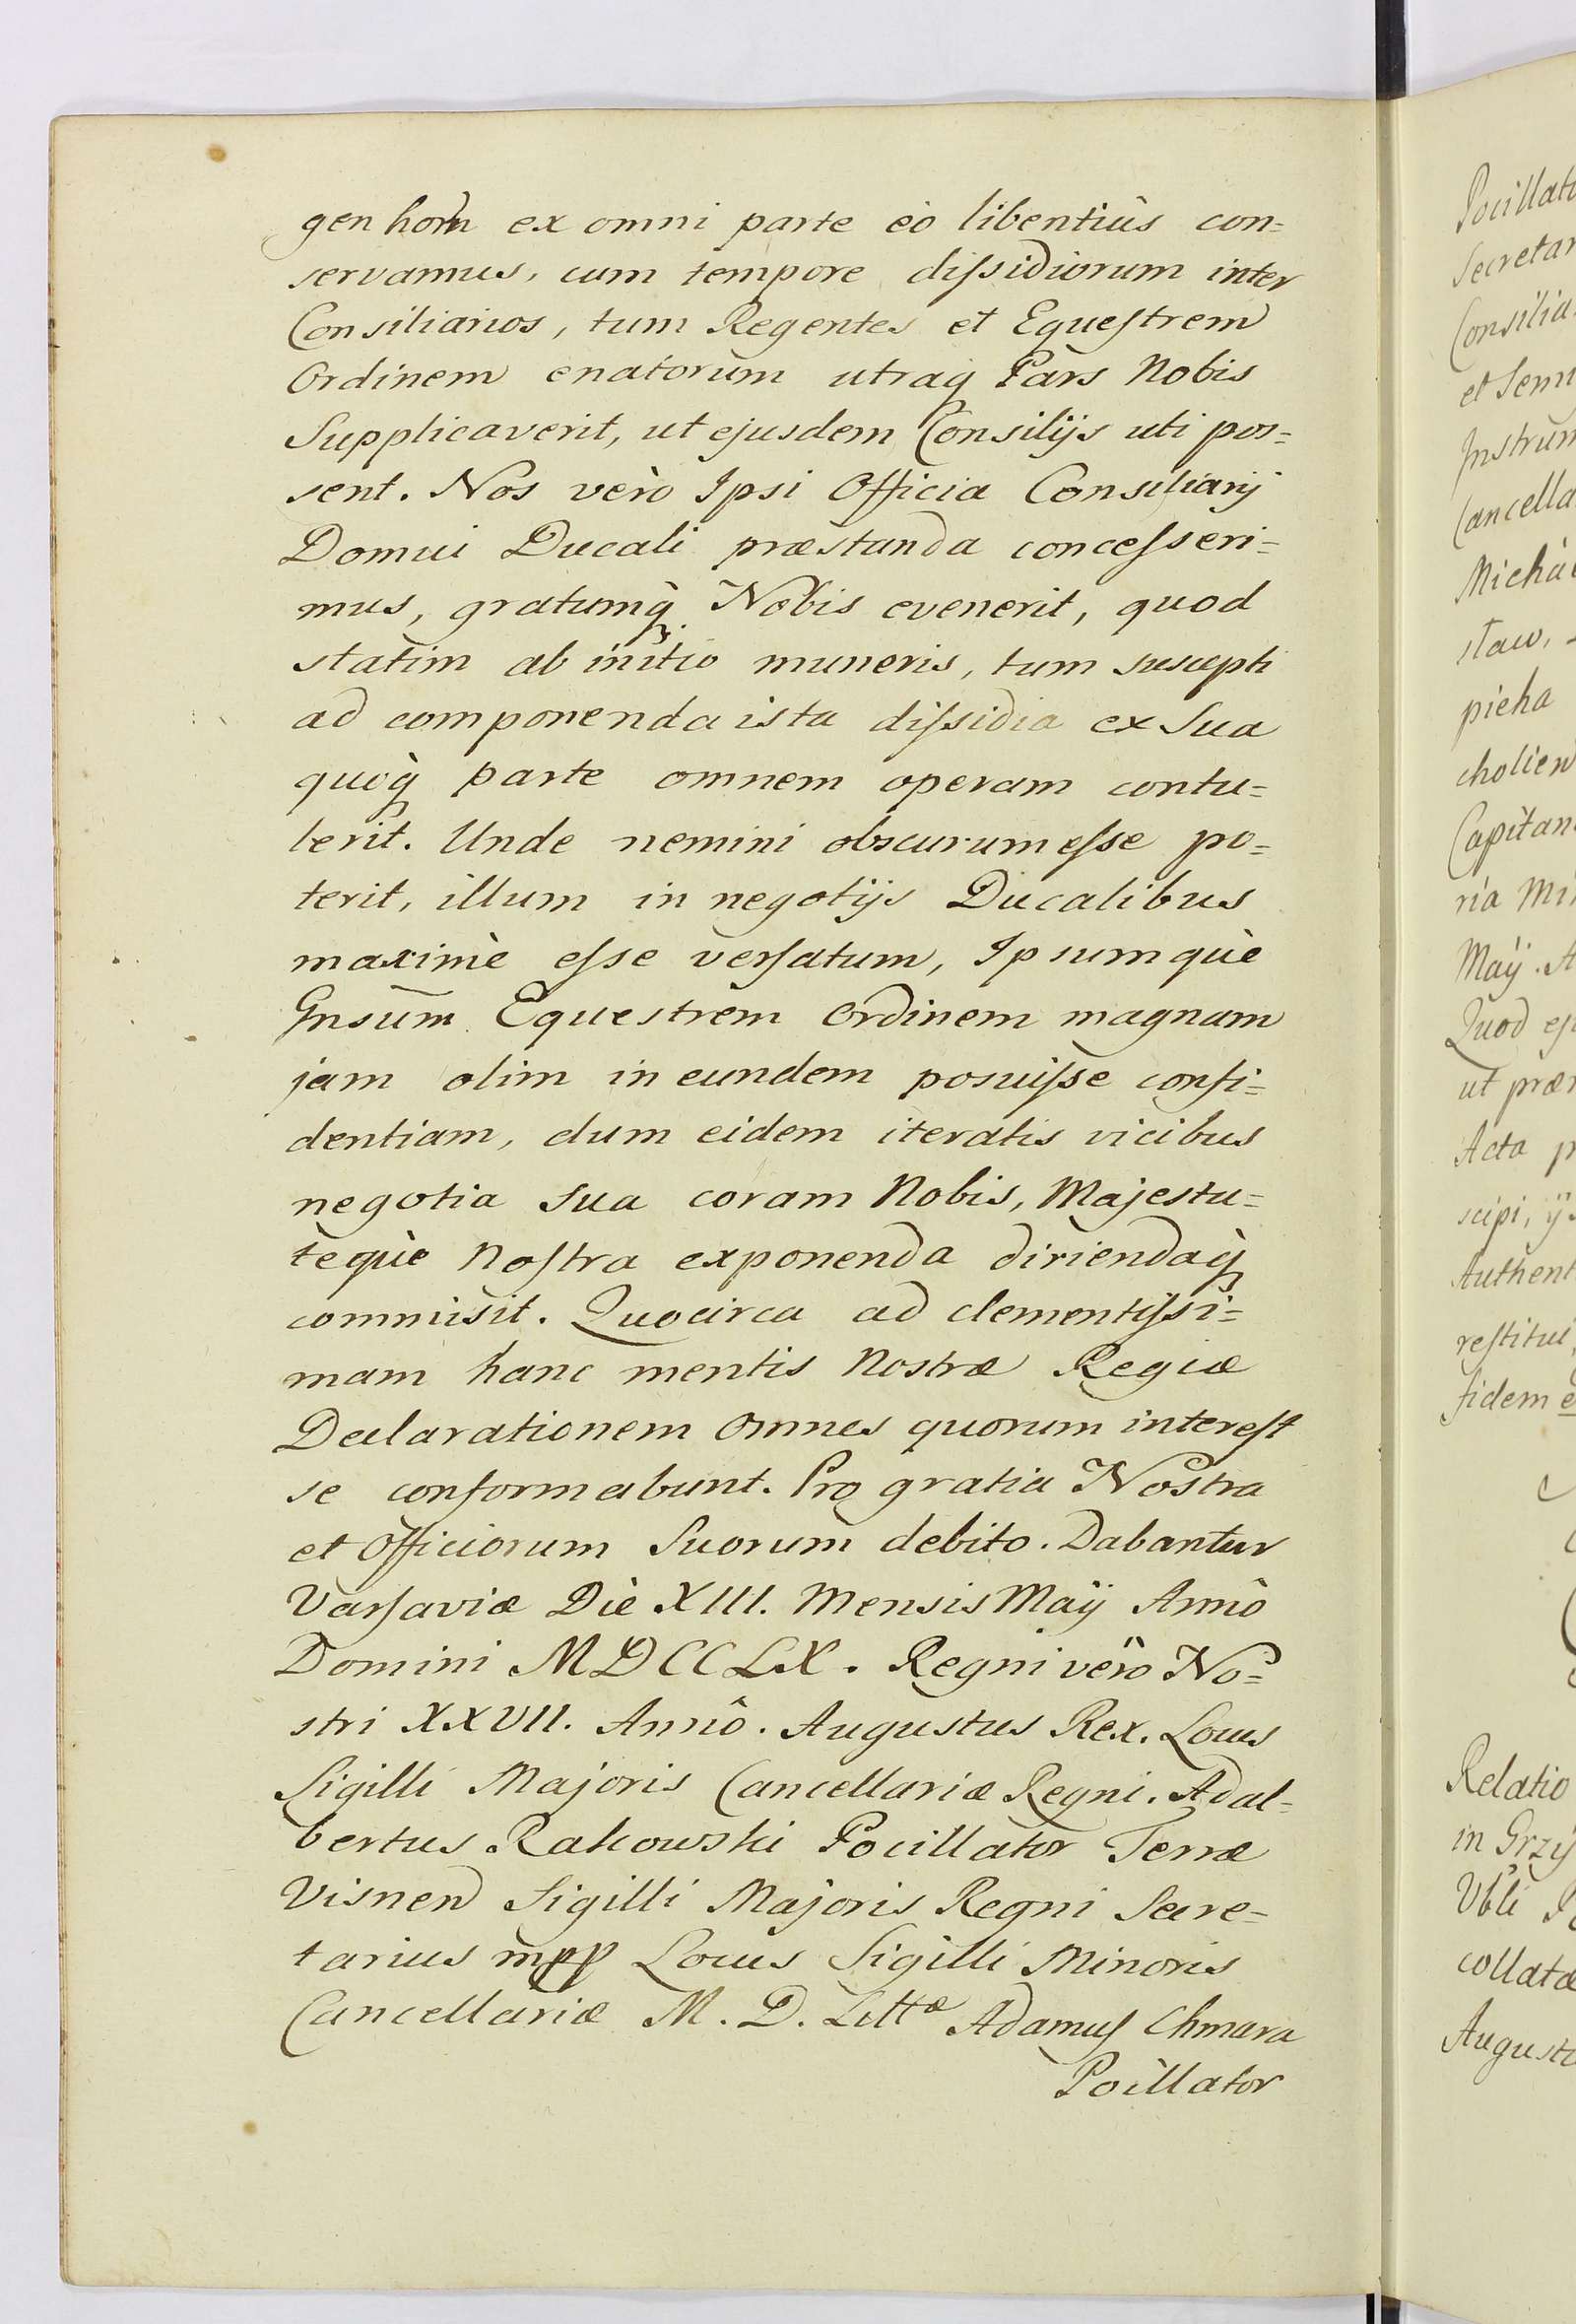 genhorn ex omni parte eò libentiùs con=
servamus, cum tempore dissidiorum inter
Consiliarios, tum Regentes et Equestrem
Ordinem enatorum utraq Pars Nobis
Supplicaverit, ut ejusdem Consilijs uti pos=
sent. Nos verò Ipsi Officia Consiliarij
Domui Ducali præstanda concesseri=
mus, gratumq̀ Nobis evenerit, quod
statim ab initio muneris, tum suscepti
ad componenda ista dissidia ex Sua
quoq̀ parte omnem operam contu=
lerit. Unde nemini obscurum esse po=
terit, illum in negotijs Ducalibus
maximè esse versatum, Ipsumquè
Gnsūm Equestrem Ordinem magnam
jam olim in eundem posuisse confi=
dentiam, dum eidem iteratis vicibus
negotia sua coram Nobis, Majesta=
tequè Nostra exponenda diriendaq̀
commisit. Quocirca ad clementissi=
mam hanc mentis Nostræ Regiæ
Declarationem Omnes quorum interest
se conformabunt. Pro gratia Nostra
et Officiorum Suorum debito. Dabantur
Varsaviæ Diè XIII. Mensis Maÿ Annô
Domini MDCCLX. Regni verò No=
stri XXVII. Annô. Augustus Rex. Locus
Sigilli Majoris Cancellariæ Regni. Adal=
bertus Rakowski Pocillator Terræ
Visnen Sigilli Majoris Regni Secre=
tarius mpp Locus Sigilli Minoris
Cancellariæ M. D. Littæ Adamus Chmara
Pocillator
Pocillato
Secretar
Consilia
et Semi
Instrum
Cancella
Michà
staw,
picha
cholien
Capitan
ria Mi
Maÿ. A
Quod
ut præ
Acta p
scipi, ÿ
Authent
restitui,
fidem
Relatio
in Grzÿ
Ubli
collatæ
Augusto